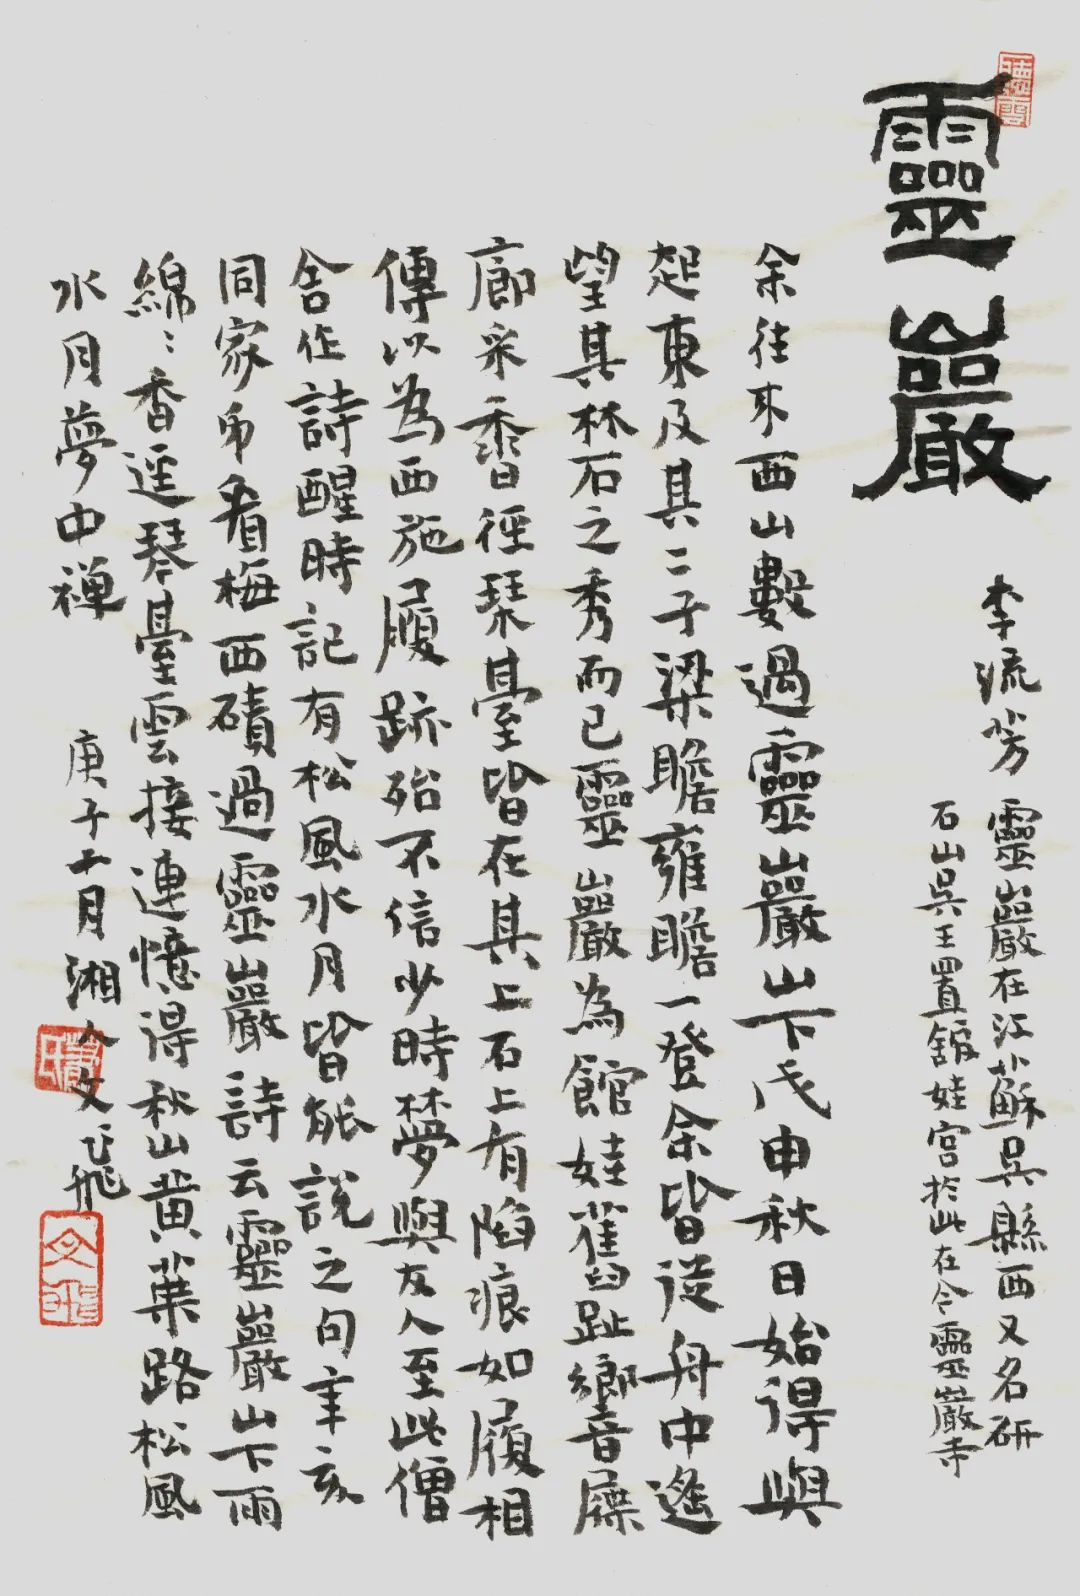 靈巖
李流芳
靈巖在江蘇吳縣西又名研
石山吳王置館娃宮於此在今靈巖寺
余往來西山數過靈巖山下戊申秋日始得與
起東及其二子梁瞻雍瞻一登余皆從舟中遙
望其林石之秀而已靈巖為館娃舊趾響屧
廊采香徑琹臺皆在其上石上有陷痕如履相
傳以為西施履跡殆不信少時夢與友人至此僧
舍作詩醒時記有松風水月皆能說之句辛亥
同家弟看梅西磧過靈巖詩云靈巖山下雨
綿〻香逕琴臺雲接連憶得秋山黃葉路松風
水月夢中禪
庚子十月湘人文飛